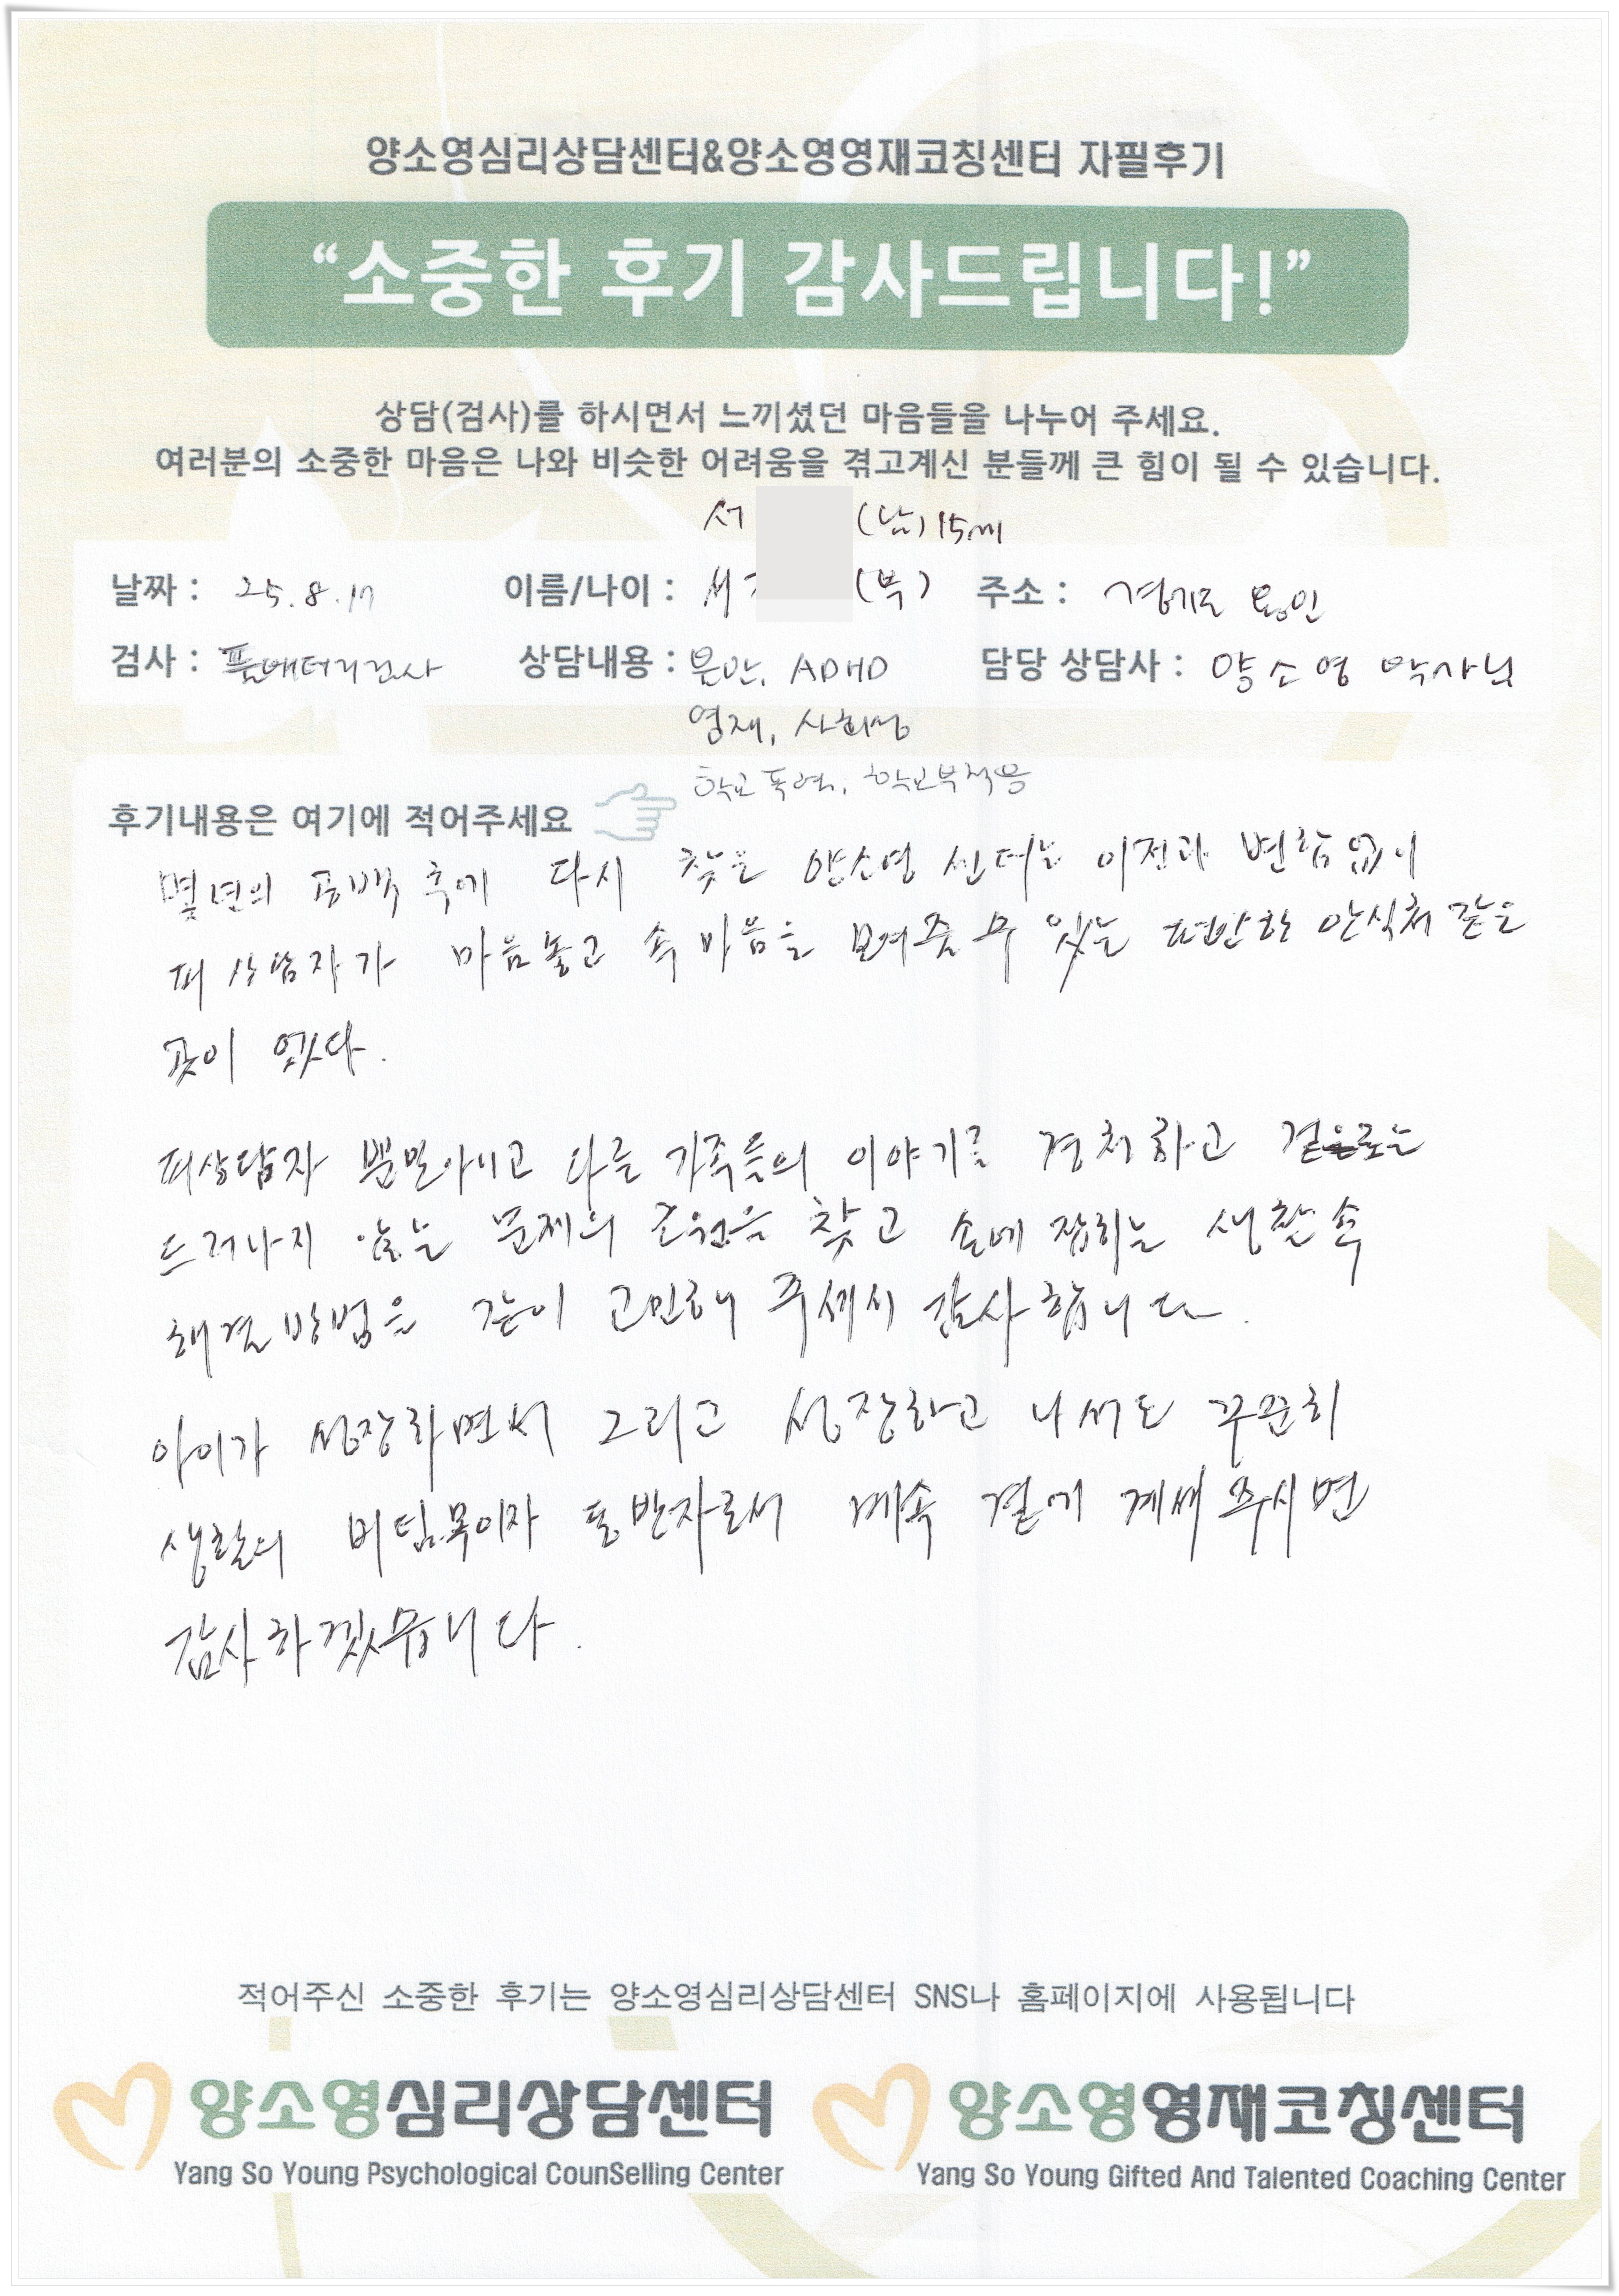 양소영심리상담센터&양소영영재코칭센터 자필후기
“소중한 후기 감사드립니다!”
상담(검사)를 하시면서 느끼셨던 마음들을 나누어 주세요.
여러분의 소중한 마음은 나와 비슷한 어려움을 겪고계신 분들께 큰 힘이 될 수 있습니다.
서 (남) 15세
날짜 : 25.8.17 이름/나이 : 서 (부) 주소 : 경기도 용인
검사 : 풀배터리검사 상담내용 : 불안, ADHD 담당 상담사 : 양소영 박사님
영재, 사회성
학교폭력, 학교부적응
후기내용은 여기에 적어주세요
몇년의 공백 후에 다시 찾은 양소영 센터는 이전과 변함없이
피상담자가 마음놓고 속마음을 보여줄 수 있는 편안한 안식처 같은
곳이 었다.
피상담자 뿐만아니고 다른 가족들의 이야기를 경청하고 겉으로는
드러나지 않는 문제의 근원을 찾고 손에 잡히는 생활속
해결방법을 같이 고민해 주셔서 감사합니다.
아이가 성장하면서 그리고 성장하고 나서도 꾸준히
생활의 버팀목이자 동반자로서 계속 곁에 계셔주시면
감사하겠습니다.
적어주신 소중한 후기는 양소영심리상담센터 SNS나 홈페이지에 사용됩니다
양소영심리상담센터 양소영영재코칭센터
Yang So Young Psychological CounSelling Center Yang So Young Gifted And Talented Coaching Center